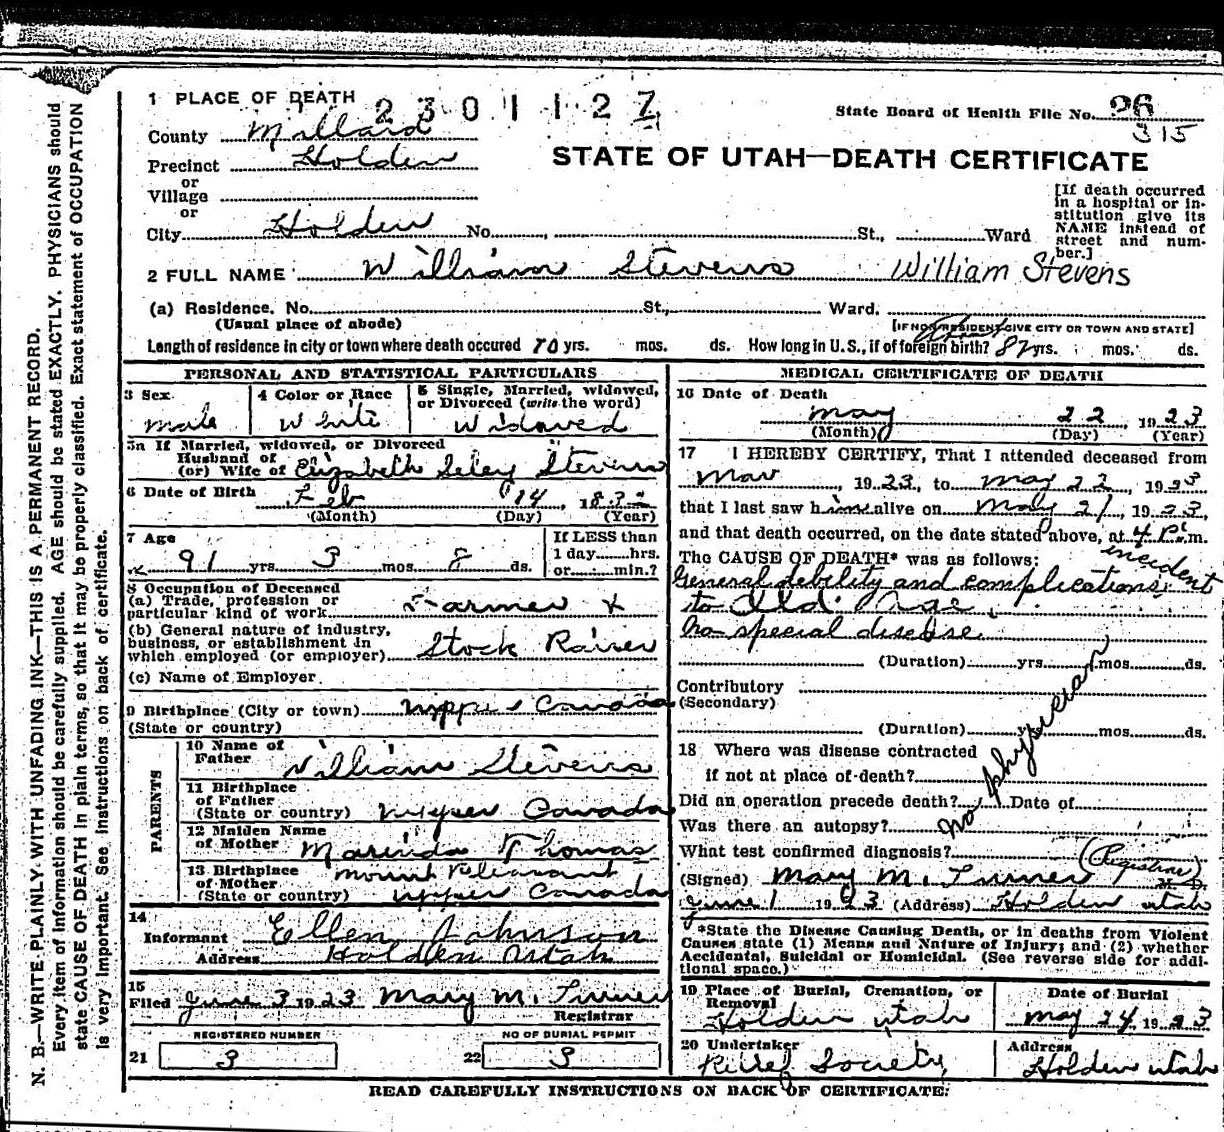 1 PLACE OF DEATH
2301127
State Board of Health File No. 26
315
County Millard
Precinct Holden
or
Village
or
City Holden No. St., Ward
STATE OF UTAH—DEATH CERTIFICATE
[If death occurred
in a hospital or in-
stitution give its
NAME instead of
street and num-
ber.]
2 FULL NAME William Stevens William Stevens
(a) Residence. No. St., Ward.
(Usual place of abode) [IF NON-RESIDENT GIVE CITY OR TOWN AND STATE]
Length of residence in city or town where death occured 70 yrs. mos. ds. How long in U.S., if of foreign birth? about 82 yrs. mos. ds.
PERSONAL AND STATISTICAL PARTICULARS
3 Sex
male
4 Color or Race
White
5 Single, Married, widowed,
or Divorced (write the word)
Widowed
5a If Married, widowed, or Divorced
Husband of
(or) Wife of Elizabeth Seley Stevens
6 Date of Birth Feb 14 1832
(Month) (Day) (Year)
7 Age
91 yrs. 3 mos. 8 ds.
If LESS than
1 day hrs.
or min.?
8 Occupation of Deceased
(a) Trade, profession or
particular kind of work Farmer x
(b) General nature of industry,
business, or establishment in
which employed (or employer) Stock Raiser
(c) Name of Employer
9 Birthplace (City or town) Upper Canada
(State or country)
PARENTS
10 Name of
Father William Stevens
11 Birthplace
of Father
(State or country) Upper Canada
12 Maiden Name
of Mother Marinda Thomas
13 Birthplace
of Mother Mount Pleasant
(State or country) Upper Canada
14
Informant Ellen Johnson
Address Holden Utah
15
Filed June 3 1923 Mary M. Turner
Registrar
REGISTERED NUMBER
21 3
NO OF BURIAL PERMIT
22 3
MEDICAL CERTIFICATE OF DEATH
16 Date of Death
May 22 1923
(Month) (Day) (Year)
17 I HEREBY CERTIFY, That I attended deceased from
Mar, 1923, to May 22, 1923
that I last saw him alive on May 21, 1923,
and that death occurred, on the date stated above, at 4 P.m.
The CAUSE OF DEATH* was as follows:
General debility and complications, incident
to Old Age,
No special disease
(Duration) yrs. mos. ds.
Contributory
(Secondary)
(Duration) mos. ds.
18 Where was disease contracted
if not at place of death?
Did an operation precede death? Date of
Was there an autopsy?
What test confirmed diagnosis?
no physician
(Registrar)
(Signed) Mary M. Turner M. D.
June 1 1923 (Address) Holden Utah
*State the Disease Causing Death, or in deaths from Violent
Causes state (1) Means and Nature of Injury; and (2) whether
Accidental, Suicidal or Homicidal. (See reverse side for addi-
tional space.)
19 Place of Burial, Cremation, or
Removal
Holden Utah
Date of Burial
May 24, 1923
20 Undertaker
Relief Society
Address
Holden Utah
READ CAREFULLY INSTRUCTIONS ON BACK OF CERTIFICATE.
N. B.—WRITE PLAINLY WITH UNFADING INK—THIS IS A PERMANENT RECORD.
Every item of information should be carefully supplied. AGE should be stated EXACTLY. PHYSICIANS should
state CAUSE OF DEATH in plain terms, so that it may be properly classified. Exact statement of OCCUPATION
is very important. See instructions on back of certificate.